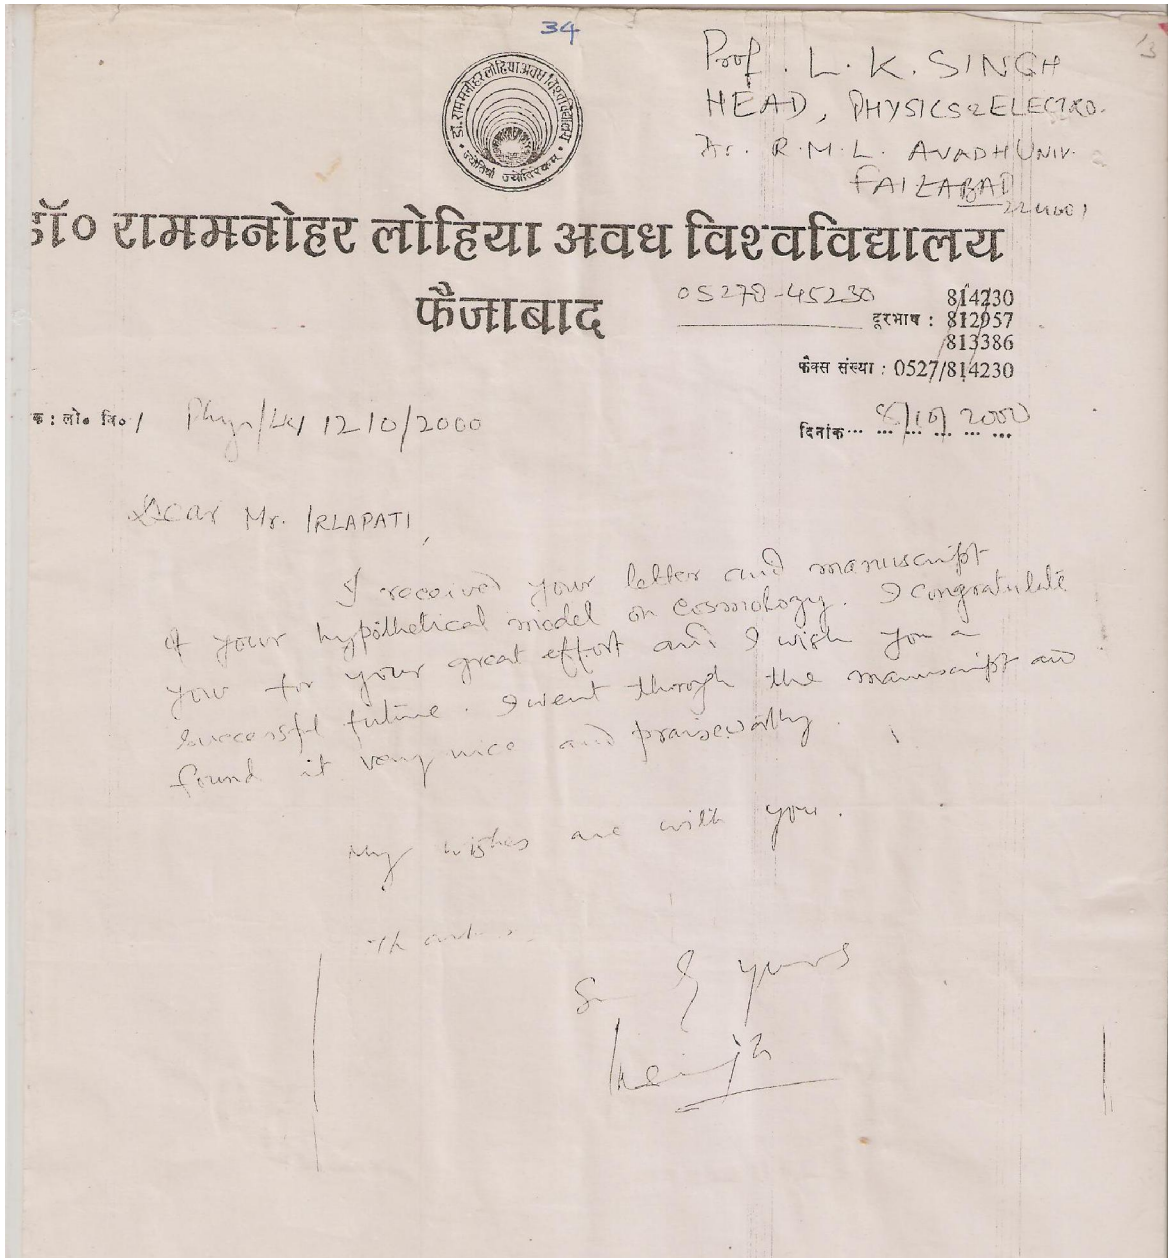 34
13
Prof. L. K. SINGH
HEAD, PHYSICS & ELECTRO.
Dr. R. M. L. AVADH UNIV.
FAIZABAD
224001
डा. राममनोहर लोहिया अवध विश्वविद्यालय
ज्योतिषां ज्योतिरेकम्
डॉ० राममनोहर लोहिया अवध विश्वविद्यालय
फैजाबाद
05278-45230
814230
दूरभाष : 812957
813386
फैक्स संख्या : 0527/814230
क : लो० वि० / Phys/ 1210/2000
दिनांक... 8/10/2000
Dear Mr. IRLAPATI,
I received your letter and manuscript
of your hypothetical model on cosmology. I congratulate
you for your great effort and I wish you a
successful future. I went through the manuscript and
found it very nice and praiseworthy.
My wishes are with you.
Thanks,
yours